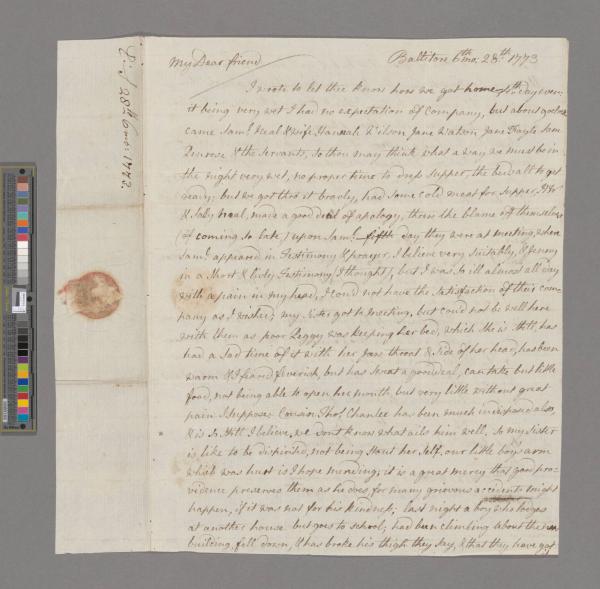 Dif 28th 6mo: 1773
My Dear friend Baltitore 6mo: 28th: 1773
I wrote to let thee know how we got home, 4th day even:
it being very wet I had no expectation of company, but about 9 oclock
came Saml Neal & wife, Hannah Wilson, Jane Watson, Jane Saml
Penrose & the servants, so thou may think what a way we must be in
the night very wet, no proper time to dress supper, the beds all to get
ready; but we got thro it bravely, had some cold meat for supper. Br
& Saly Neal, made a good deal of apology, thrie the blame off themselves
(of coming so late) upon Saml. fifth day they were at meeting, where
Saml appeared in Testimony & prayer, I believe very suitably, &
in a short & lively Testimony I thought), but I was so ill almost all day
with a pain in my head, I could not have the satisfaction of their com=
pany as I wished; my Sister got to meeting, but could not be well here
with them as poor Peggy was keeping her bed, which she is still, has
had a sad time of it with her jaw throat & side of her head, has been
warm & I feard feverish, but has sweat a good deal, can take but little
food, not being able to open her mouth, but very little without great
pain I suppose. Cousin Thos Chanlee has been much indisposed also,
& is so still I believe, we dont know what ails him well. So my Sister
is like to be dispirited, not being stout her self. our little boys arm
which was hurt is I hope mending; it is a great mercy that good pro=
vidence preserves them as he does for many grievous accidents might
happen, if it was not for his kindness; last night a boy who lodges
at another house but goes to school, had been climbing about the new
building, fell down, & has broke his thigh they say, & that they have got